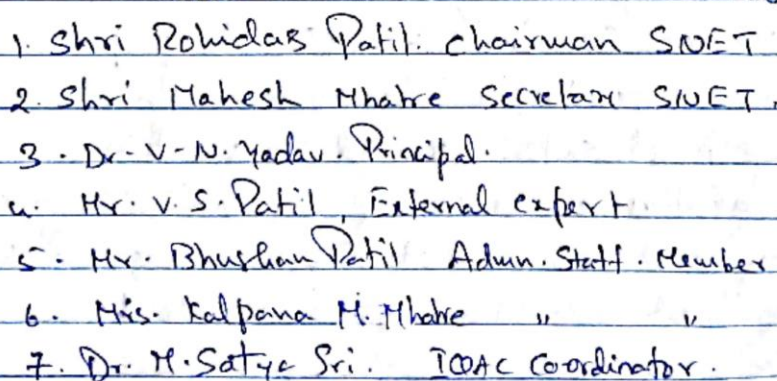 1. Shri Rohidas Patil. Chairman SNET
2. Shri Mahesh Mhatre Secretary SNET.
3. Dr. V. N. Yadav. Principal.
4. Mr. V. S. Patil, External expert.
5. Mr. Bhushan Patil Admn. Staff. Member
6. Mrs. Kalpana M. Mhatre " "
7. Dr. M. Satya Sri. IQAC Coordinator.